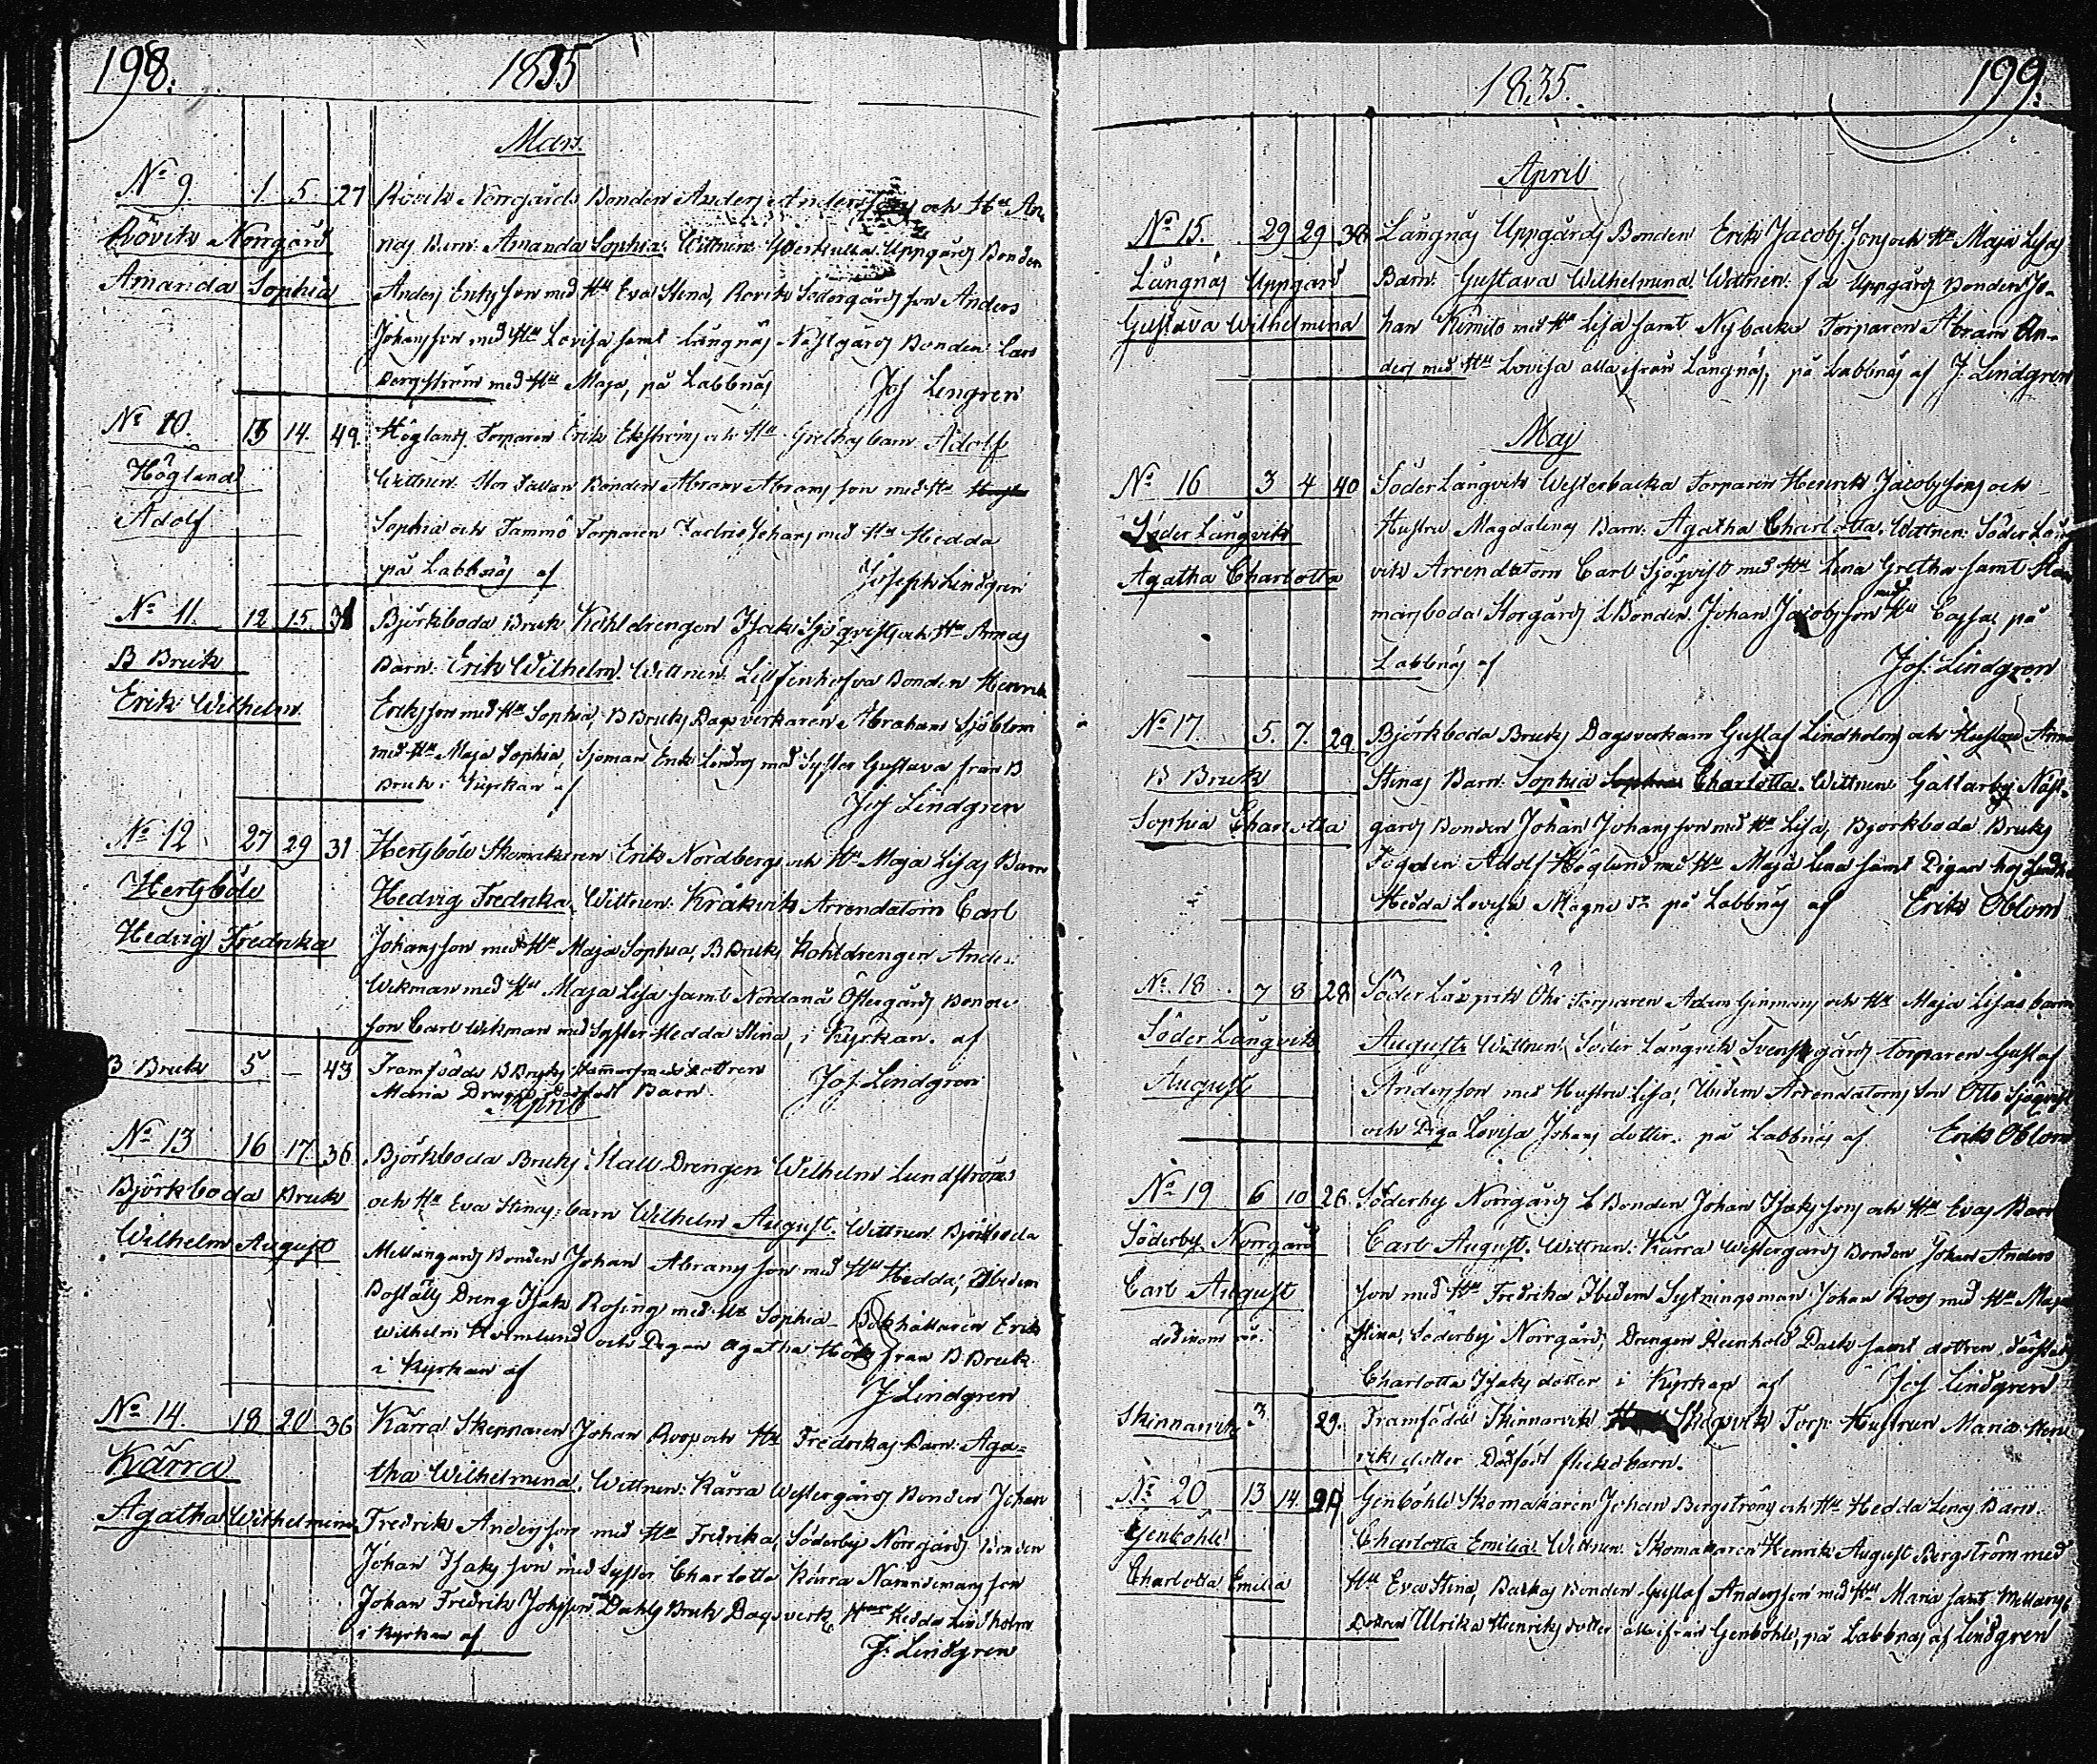 198.
1835
Mars.
No 9. 1 5. 27 Rövik Norrgårds Bonden Anders Anderssons och Hu An-
Rövik Norrgård
nas Barn: Amanda Sophia. Wittnen: Uppgårds Bonden
Amanda Sophia
Anders Ericksson med Hu Eva Stina, Rövik Södergårds son Anders
Johansson med Hu Lovisa samt Långnäs Nästgårds Bonden Lars
Bergström med Hu Maja, på Labbnäs Jos Lengren
No 10. 13 14. 49. Höglands Torparen Erik Ekströms och Hu Grethas barn Adolf
Högland
Wittnen. Stor Bonden Abram Abramsson med Hu
Adolf
Sophia och Tammo Torparen Johans med Hu Hedda
på Labbnäs af Joseph Lindgren
No 11. 12 15. 31 Björkboda Bruk Kohldrengen Isak Sjöqvists och Hu Annas
B Bruk
Barn: Erik Wilhelm. Wittnen: Lill Finhofva Bonden Henrik
Erik Wilhelm
Eriksson med Hu Sophia, B Bruks Dagsverkaren Abraham Sjöblom
med Hu Maja Sophia, Sjöman Erik Lindros med Syster Gustava från B
Bruk i Kyrkan af
Jos Lindgren
No 12 27 29 31 Hertsböle Skomakaren Erik Nordbergs och Hu Maja Lisas Barn
Hertsböle
Hedvig Fredrika. Wittnen: Kråkvik Arrendatorn Carl
Hedvig Fredrika
Johansson med Hu Maja Sophia, B Bruks Kohldrengen Anders
Wikman med Hu Maja Lisa samt Nordanå Östergårds Bonde-
son Carl Wikman med Syster Hedda Stina, i Kyrkan. af
B Bruk 5 — 43 Framfödde B Bruks dottren Jos. Lindgren
Maria dödfödt Barn.
April
No 13 16 17. 36 Björkboda Bruks Stall Drengen Wilhelm Lundströms
Björkboda Bruk
och Hu Eva Stinas barn Wilhelm August. Wittnen Björkboda
Wilhelm August
Mellangårds Bonden Johan Abramsson med Hu Hedda, Ibidem
Boställs Dreng Isak Rosing med Hu Sophia Bokhållaren Erik
Wilhelm Holmlund och Pigan Agatha Höök från B Bruk
i Kyrkan af
J Lindgren
No 14. 18 20 36 Kärra Skepparen Johan Roos och Hu Fredrikas Barn: Aga-
Kärra
tha Wilhelmina. Wittnen: Kärra Westergårds Bonden Johan
Agatha Wilhelmina
Fredrik Andersson med Hu Fredrika, Söderby Norrgårds Bonden
Johan Isaksson med Syster Charlotta Kärra Nämndemans son
Johan Fredrik Johsson Dahls Bruk Dagsverk Hedda Lindholm
i Kyrkan af
J: Lindgren
1835.
199.
April
No 15. 29 29 38 Långnäs Uppgårds Bonden Erik Jacobssons och Hu Maja Lisas
Långnäs Uppgård
Barn: Gustava Wilhelmina. Wittnen: f d Uppgårds Bonden Jo-
Gustava Wilhelmina
han Kimito med Hu Lisa samt Nybacka Torparen Abram An-
ders med Hu Lovisa alla ifrån Långnäs, på Labbnäs af J. Lindgren
Maj
No 16 3 4 40 Söder Långvik Westerbacka Torparen Henrik Jacobssons och
Söder Långvik
Hustru Magdalenas Barn: Agatha Charlotta. Wittnen: Söder Lång
Agatha Charlotta
vik Arrendatorn Carl Sjöqvist med Hu Lena Gretha samt
marsboda Storgårds L Bonden Johan Jacobsson med Hu Cajsa, på
Labbnäs af Jos. Lindgren
No 17. 5. 7. 29. Björkboda Bruks Dagsverkarn Gustaf Lindholms och Hustru Anna
B Bruk
Stinas Barn: Sophia Sophia Charlotta. Wittnen Gallarby Näst-
Sophia Charlotta
gårds Bonden Johan Johansson med Hu Lisa, Björkboda Bruks
Fogden Adolf Höglund med Hu Maja Lena samt Pigan hos
Hedda Lovisa på Labbnäs af Erik Oblom
No 18 7 8 28 Söder Långvik Torparen Adam Ginmans och Hu Maja Lisas barn
Söder Långvik
August. Wittnen: Söder Långvik Svensgårds torparen Gustaf
August
Andersson med Hustru Lisa, Ibidem Arrendatorns son Otto Sjöqvist
och Piga Lovisa Johans dotter. på Labbnäs af Erik Oblom
No 19 6 10 26. Söderby Norrgårds L Bonden Johan Isakssons och Hu Evas Barn
Söderby Norrgård
Carl August. Wittnen: Kärra Westergårds Bonden Johan Anders
Carl August
son med Hu Fredrika Ibidem Sytningsman Johan Roos med Hu Maja
död
Stina, Söderby Norrgårds Drengen Reinhold samt dottren
Charlotta Isaks dotter i Kyrkan af Jos Lindgren
Skinnarvik 3 29. Framfödde Skinnarvik Skogvik Torp: Hustrun Maria Hen-
riks dotter Dödfödt flickobarn.
No 20 13 14. Genböhle Skomakaren Johan Bergströms och Hu Hedda Lenas Barn.
Genböhle
Charlotta Emilia. Wittnen: Skomakaren Henrik August Bergström med
Charlotta Emilia
Hu Eva Stina, Backas Bonden Gustaf Andersson med Hu Maria samt
Dottren Ulrika Henriks dotter alla ifrån Genböhle, på Labbnäs af Lindgren